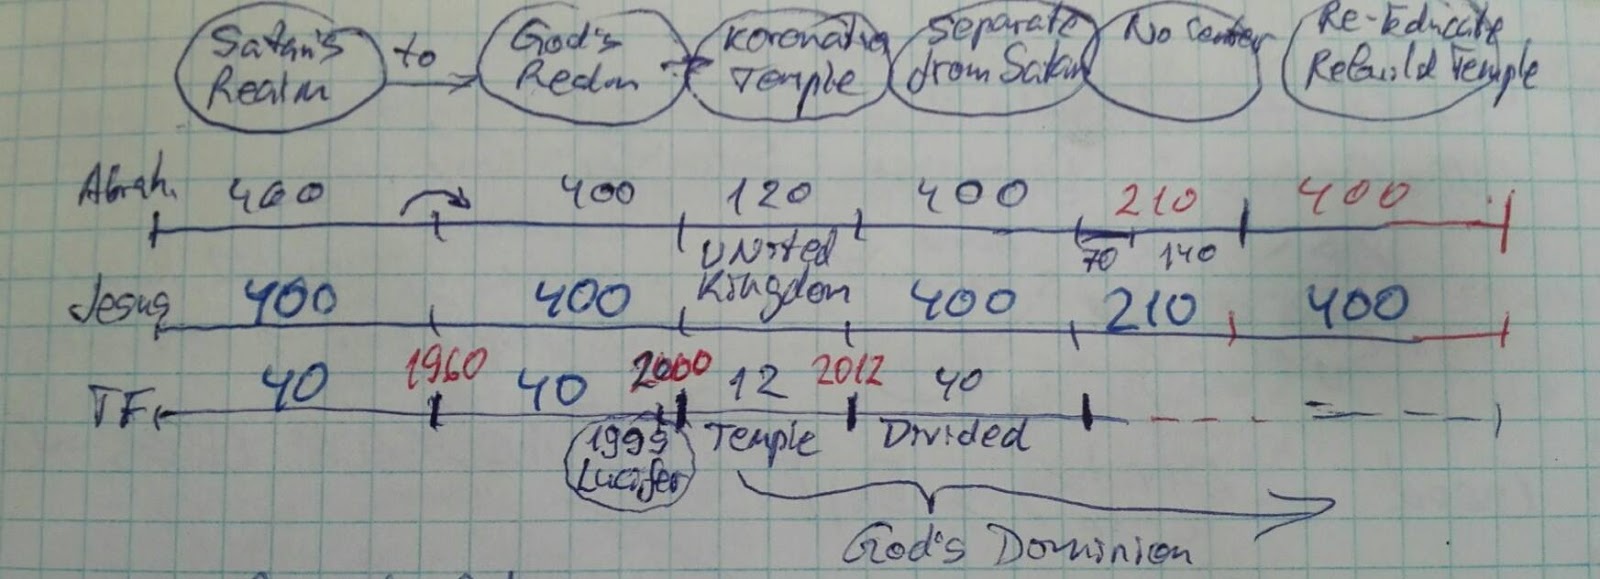 Satan's
Realm
to
God's
Realm
Koronation
Temple
Separate
from Satan
No Center
Re-Educate
Rebuild Temple
Abrah. 400 400 120 400 210 400
70 140
United
Kingdom
Jesus 400 400 400 210 400
TF 40 1960 40 2000 12 2012 40
1999
Lucifer
Temple
Divided
God's Dominion